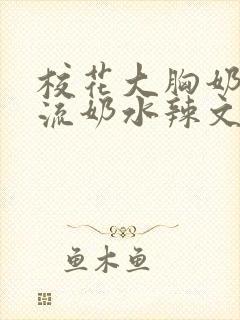 校花大胸奶
流奶水辣文
鱼木鱼